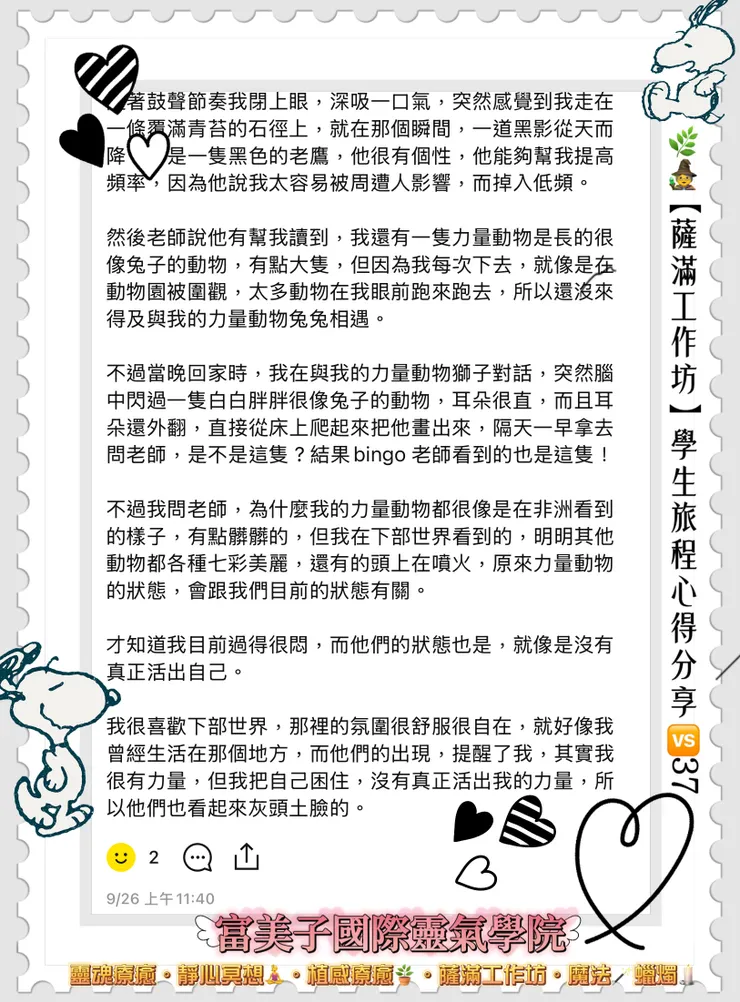 著鼓聲節奏我閉上眼，深吸一口氣，突然感覺到我走在
一條覆滿青苔的石徑上，就在那個瞬間，一道黑影從天而
降 是一隻黑色的老鷹，他很有個性，他能夠幫我提高
頻率，因為他說我太容易被周遭人影響，而掉入低頻。
然後老師說他有幫我讀到，我還有一隻力量動物是長的很
像兔子的動物，有點大隻，但因為我每次下去，就像是在
動物園被圍觀，太多動物在我眼前跑來跑去，所以還沒來
得及與我的力量動物兔兔相遇。
不過當晚回家時，我在與我的力量動物獅子對話，突然腦
中閃過一隻白白胖胖很像兔子的動物，耳朵很直，而且耳
朵還外翻，直接從床上爬起來把他畫出來，隔天一早拿去
問老師，是不是這隻？結果bingo 老師看到的也是這隻！
不過我問老師，為什麼我的力量動物都很像是在非洲看到
的樣子，有點髒髒的，但我在下部世界看到的，明明其他
動物都各種七彩美麗，還有的頭上在噴火，原來力量動物
的狀態，會跟我們目前的狀態有關。
才知道我目前過得很悶，而他們的狀態也是，就像是沒有
真正活出自己。
我很喜歡下部世界，那裡的氛圍很舒服很自在，就好像我
曾經生活在那個地方，而他們的出現，提醒了我，其實我
很有力量，但我把自己困住，沒有真正活出我的力量，所
以他們也看起來灰頭土臉的。
2
9/26 上午11:40
【薩滿工作坊】學生旅程心得分享🆚37
富美子國際靈氣學院
靈魂療癒·靜心冥想·植感療癒·薩滿工作坊·魔法 蠟燭